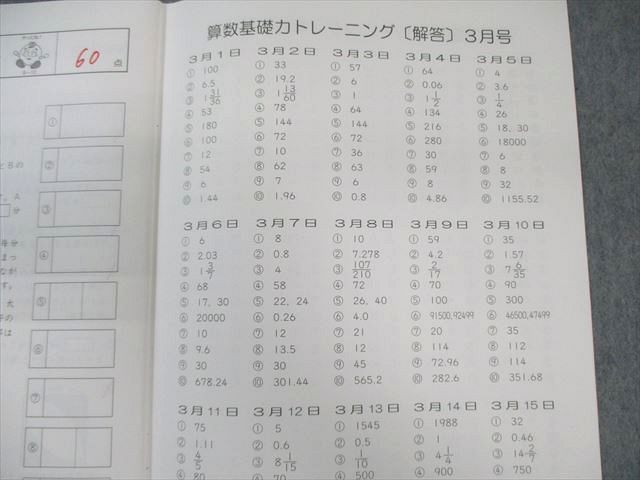 60 点
①
②
③
④
⑤
⑥
⑦
⑧
とBの
分
算数基礎力トレーニング〔解答〕3月号
3月1日
① 100
② 6.5
③ 1 31/36
④ 53
⑤ 180
⑥ 100
⑦ 12
⑧ 54
⑨ 6
⑩ 1.44
3月2日
① 33
② 19.2
③ 1 13/60
④ 78
⑤ 144
⑥ 72
⑦ 10
⑧ 62
⑨ 7
⑩ 1.96
3月3日
① 57
② 6
③ 1
④ 64
⑤ 144
⑥ 72
⑦ 36
⑧ 63
⑨ 6
⑩ 0.8
3月4日
① 64
② 0.06
③ 1 1/2
④ 134
⑤ 216
⑥ 280
⑦ 30
⑧ 59
⑨ 8
⑩ 4.86
3月5日
① 4
② 3.6
③ 1/4
④ 26
⑤ 18, 30
⑥ 18000
⑦ 6
⑧ 8
⑨ 32
⑩ 1155.52
3月6日
① 6
② 2.03
③ 1 3/7
④ 68
⑤ 17, 30
⑥ 20000
⑦ 10
⑧ 9.6
⑨ 30
⑩ 678.24
3月7日
① 8
② 0.8
③ 4
④ 58
⑤ 22, 24
⑥ 0.26
⑦ 12
⑧ 13.5
⑨ 30
⑩ 301.44
3月8日
① 10
② 7.278
③ 107/210
④ 72
⑤ 26, 40
⑥ 4.0
⑦ 21
⑧ 12
⑨ 45
⑩ 565.2
3月9日
① 59
② 4.2
③ 2/17
④ 70
⑤ 100
⑥ 91500,92499
⑦ 20
⑧ 114
⑨ 72.96
⑩ 282.6
3月10日
① 35
② 1.57
③ 7 6/35
④ 90
⑤ 300
⑥ 46500,47499
⑦ 35
⑧ 112
⑨ 114
⑩ 351.68
3月11日
① 75
② 1.11
③ 4/5
④ 80
3月12日
① 5
② 0.6
③ 8 1/15
④ 70
3月13日
① 1545
② 0.5
③ 1/10
④ 500
3月14日
① 1988
② 1
③ 4 1/4
④ 900
3月15日
① 32
② 0.46
③ 14 2/7
④ 750